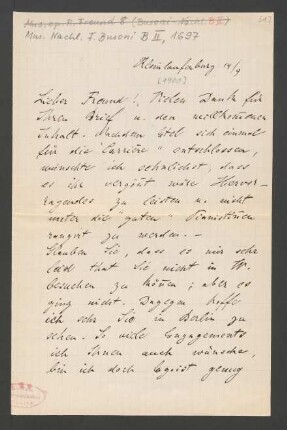 Mus. ep. R. Freund 8 (Busoni-Nachl. B II)
Mus. Nachl. F. Busoni B II, 1697
Kleinlaufenburg 14/9
[1900]
Lieber Freund! Vielen Dank für
Ihren Brief u. den wertvollen
Inhalt. Nachdem Etel sich einmal
für die "Carrière" entschlossen,
wünschte ich sehnlichst, dass
es ihr vergönnt wäre Hervor-
ragendes zu leisten u. nicht
unter die "guten" Pianistinen
rangirt zu werden. –
Glauben Sie, dass es mir sehr
leid that Sie nicht in W.
besuchen zu können; aber es
ging nicht. Dagegen hoffe
ich sehr Sie in Berlin zu
sehen. So viele Engagements
ich Ihnen auch wünsche,
bin ich doch Egoist genug